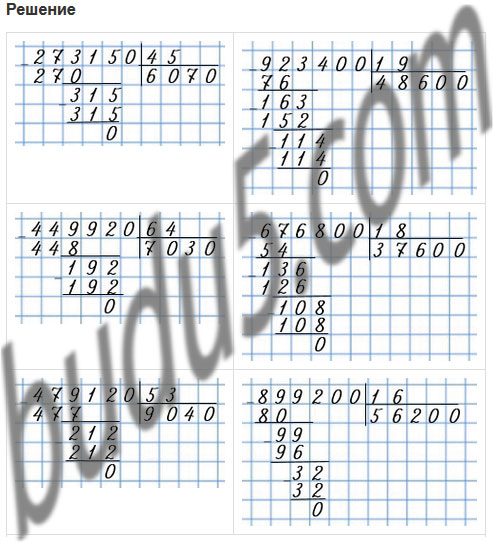 Решение
-273150|45
270 6070
-315
315
0
-923400|19
76 48600
-163
152
-114
114
0
-449920|64
448 7030
-192
192
0
-676800|18
54 37600
-136
126
-108
108
0
-479120|53
477 9040
-212
212
0
-899200|16
80 56200
-99
96
-32
32
0
budu5.com